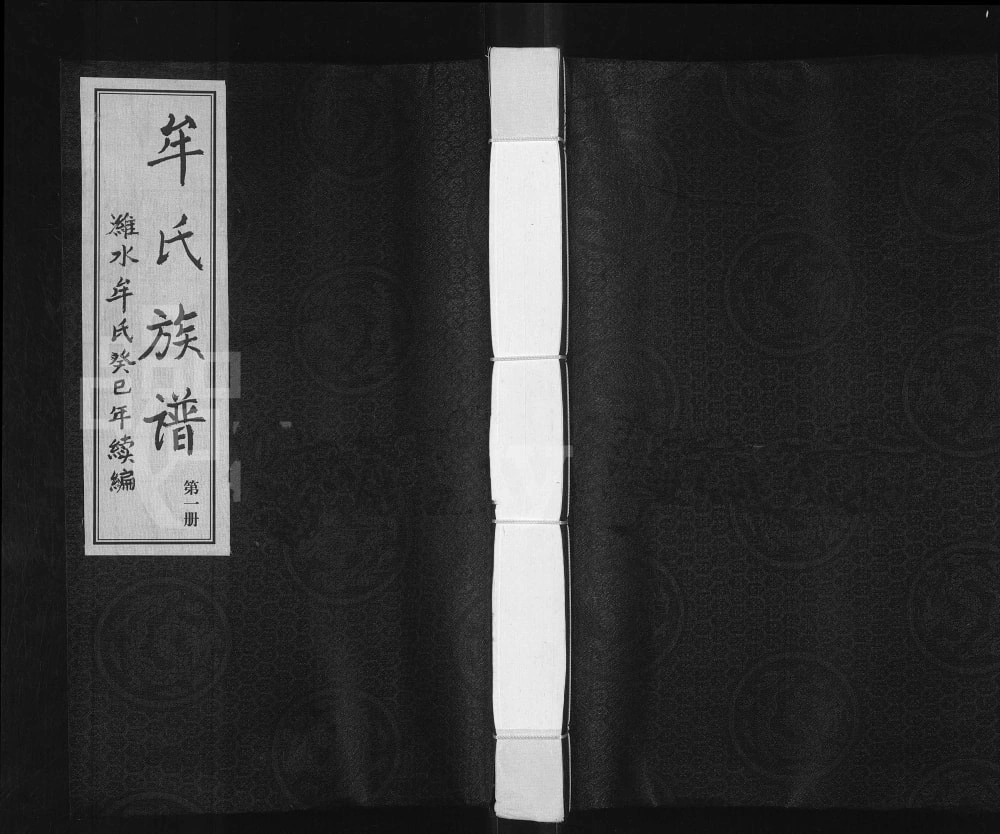 牟氏族谱
第一册
潍水牟氏癸巳年续编